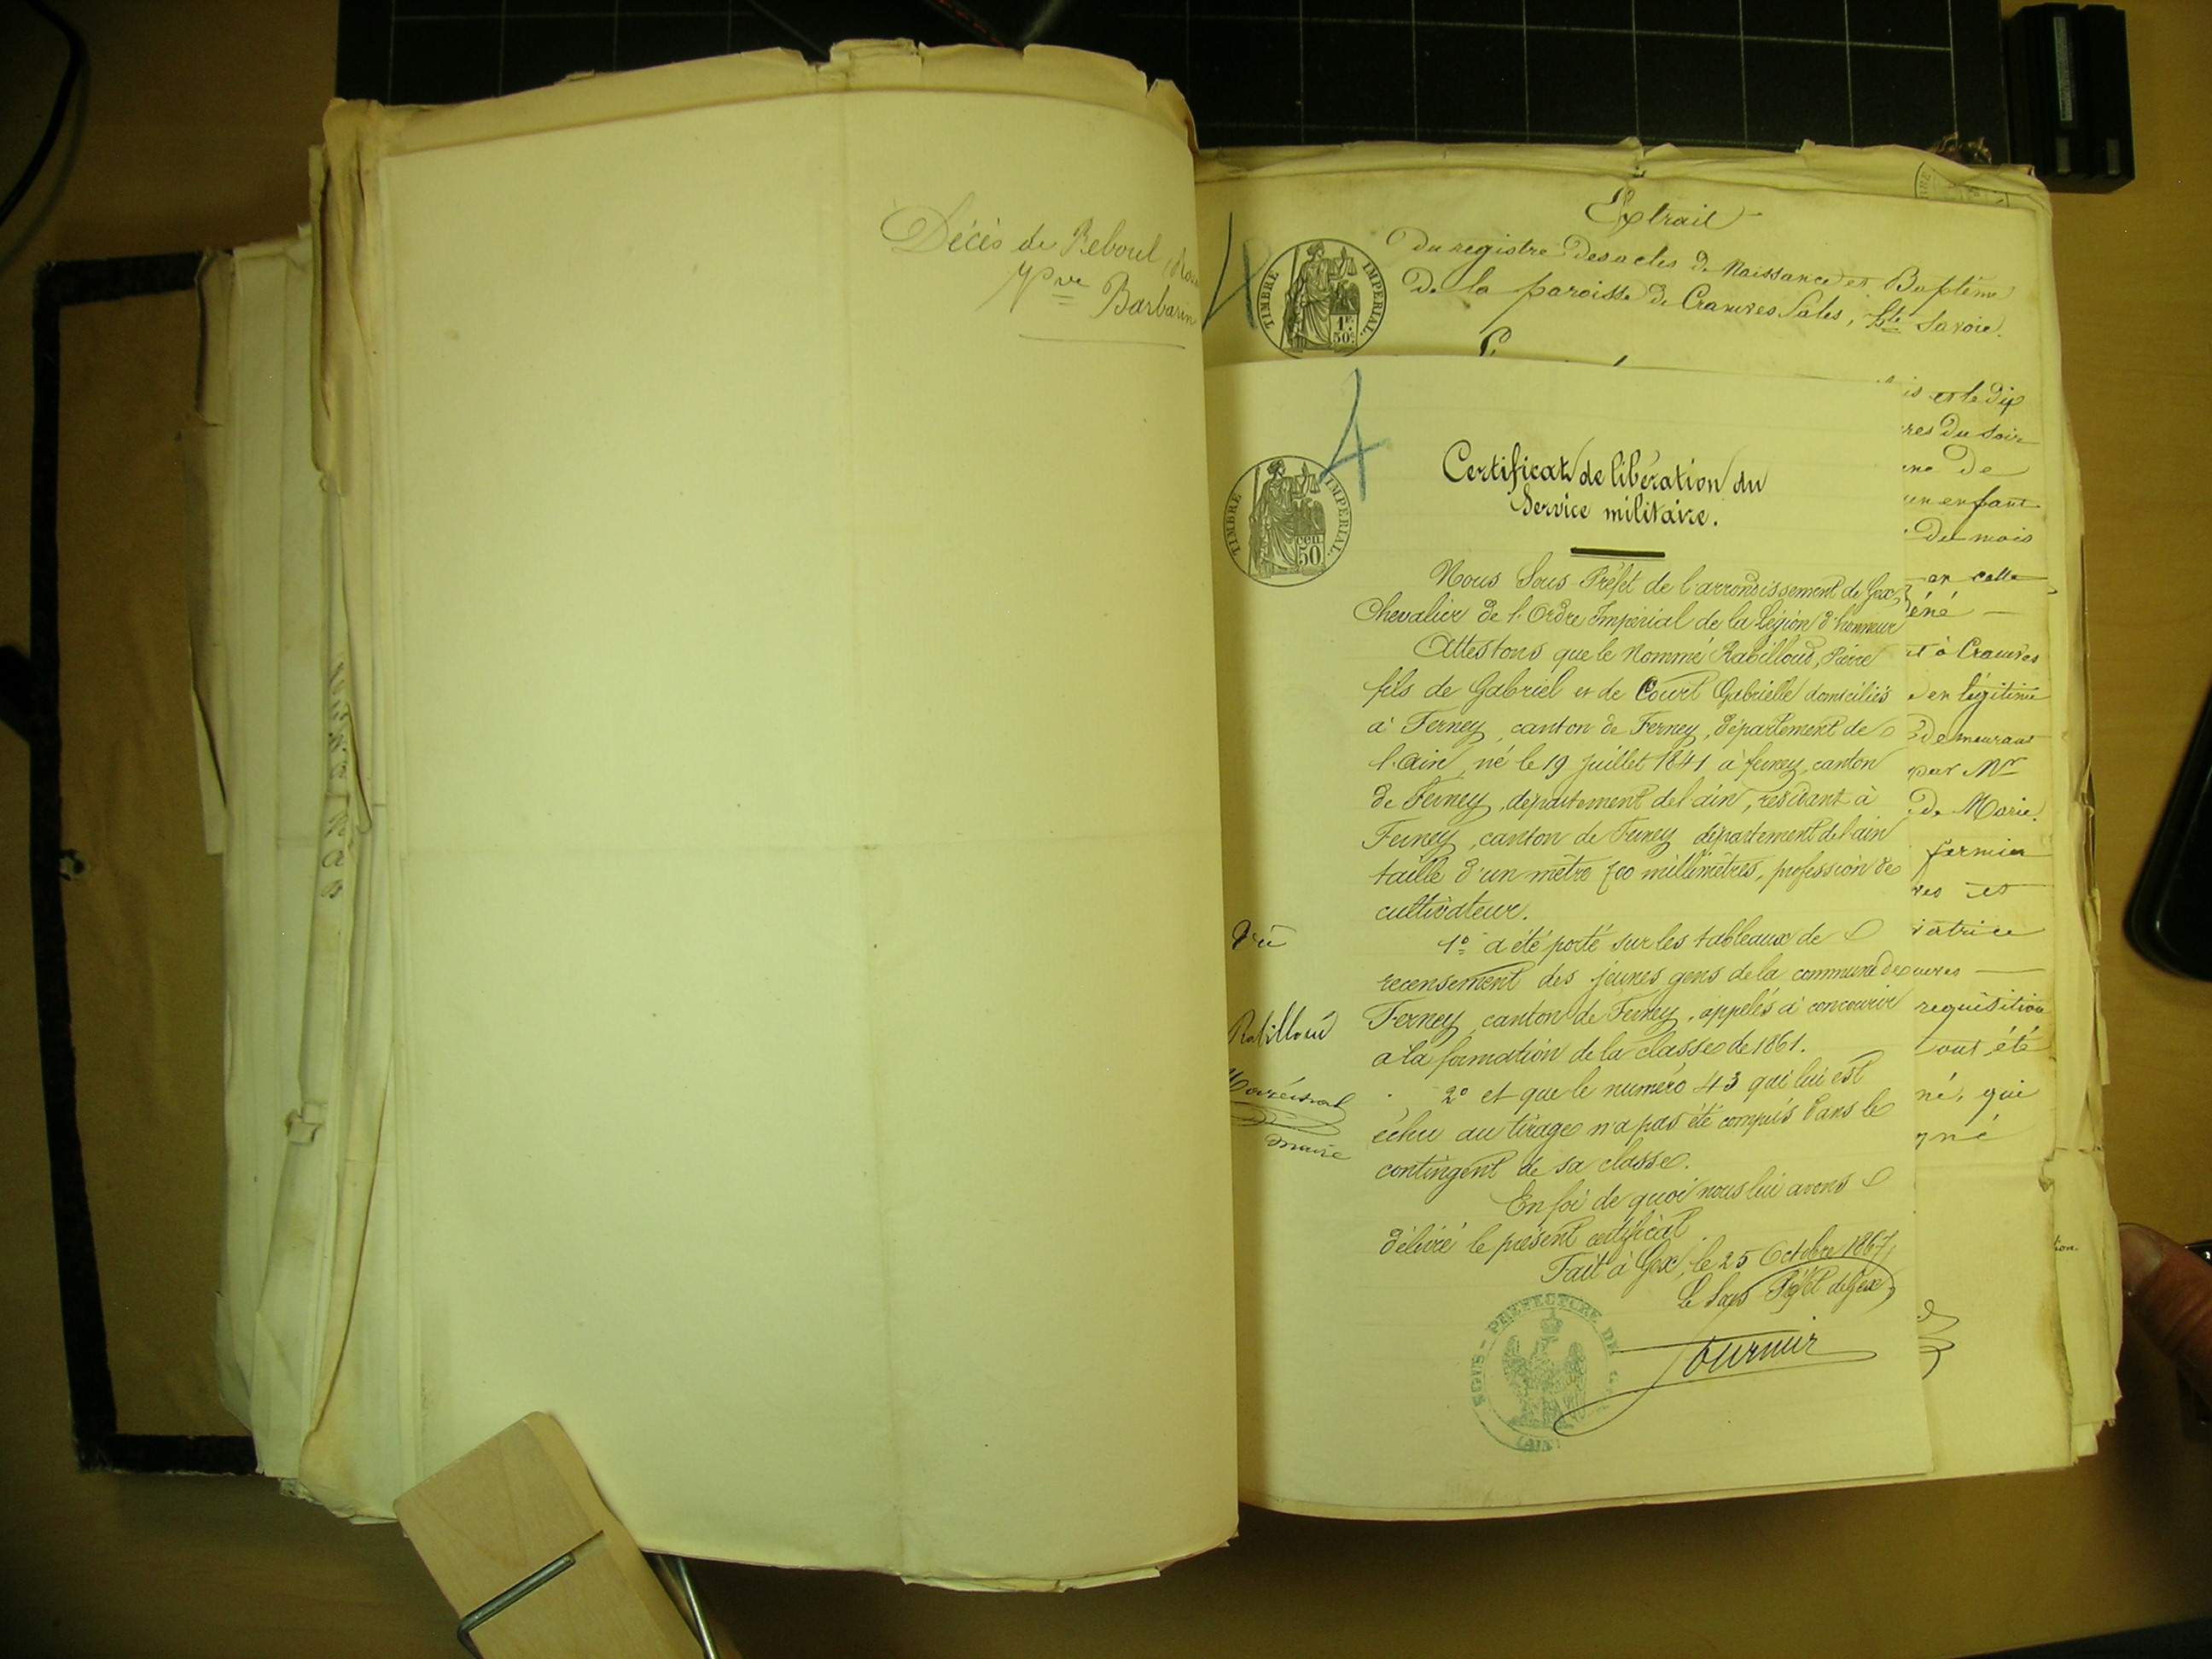 Décès de Reboul
Vve Barbarin
Extrait
du registre des actes de Naissance et Baptême
De la paroisse de Cranves Sales, Hte Savoie.
TIMBRE IMPERIAL
1F. 50c
4
is et le dix
res du soir
une de
un enfant
du mois
en cette
éné
et à Cranves
en légitime
Demeurant
par Mr
de Marie
fermier
res et
iatrice
uves
requisition
ont été
né, qui
gné
tion.
4
TIMBRE IMPERIAL
cen. 50
Certificat de libération du
Service militaire.
Nous Sous Préfet de l'arrondissement de Gex,
Chevalier de l'Ordre Impérial de la Légion d'honneur
Attestons que le Nommé Rabilloud, Pierre
fils de Gabriel et de Court Gabrielle domiciliés
à Ferney, canton de Ferney, département de
l'Ain, né le 19 juillet 1841 à ferney, canton
de Ferney, département de l'ain, résidant à
Ferney, canton de Ferney département de l'ain
taille d'un mètre 700 millimètres, profession de
cultivateur.
1o a été porté sur les tableaux de
recensement des jeunes gens de la commune de
Ferney, canton de Ferney, appelés à concourir
a la formation de la classe de 1861.
2o et que le numéro 43 qui lui est
échu au tirage n'a pas été compris dans le
contingent de sa classe.
En foi de quoi nous lui avons
délivré le présent certificat.
Fait à Gex, le 25 Octobre 1867,
Le Sous Préfet de Gex,
Fournier
SOUS-PREFECTURE DE
(AIN)
Vu
Rabilloud
maire